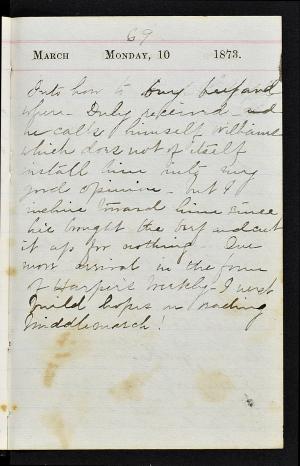 69
MARCH MONDAY, 10 1873.
Into how to buy beef and
when - Duly received - and
he calls himself Williams
which does not of itself
install him into my
good opinion - but I
incline toward him since
he bought the beef and cut
it up for nothing - One
more arrival in the form
of Harper's Weekly - I next
build hopes on reading
Middlemarch!